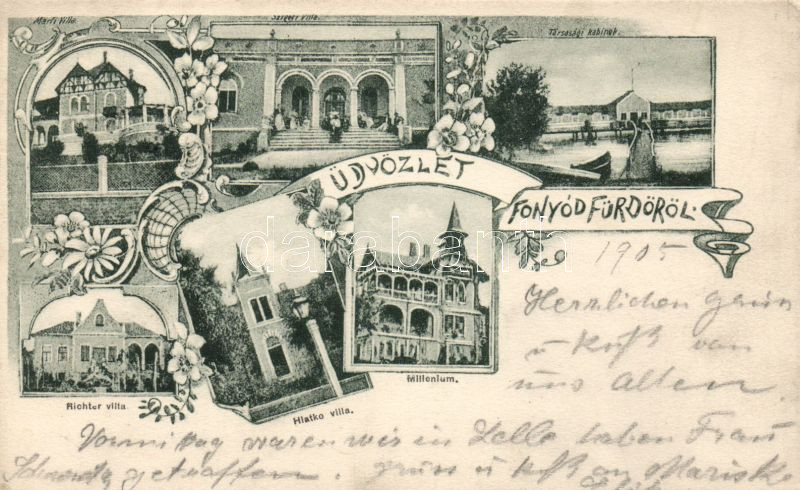 Márfi Villa.
Szigeti Villa.
Társasági kabinok.
ÜDVÖZLET
FONYÓD FÜRDŐRŐL.
1905
Herzlichen
u Kuß von
uns allen
Richter villa
Hlatko villa.
Millenium.
Vormittag waren wir in Lelle haben Frau
getroffen. gruss u Kuß an Mariske
darabanth